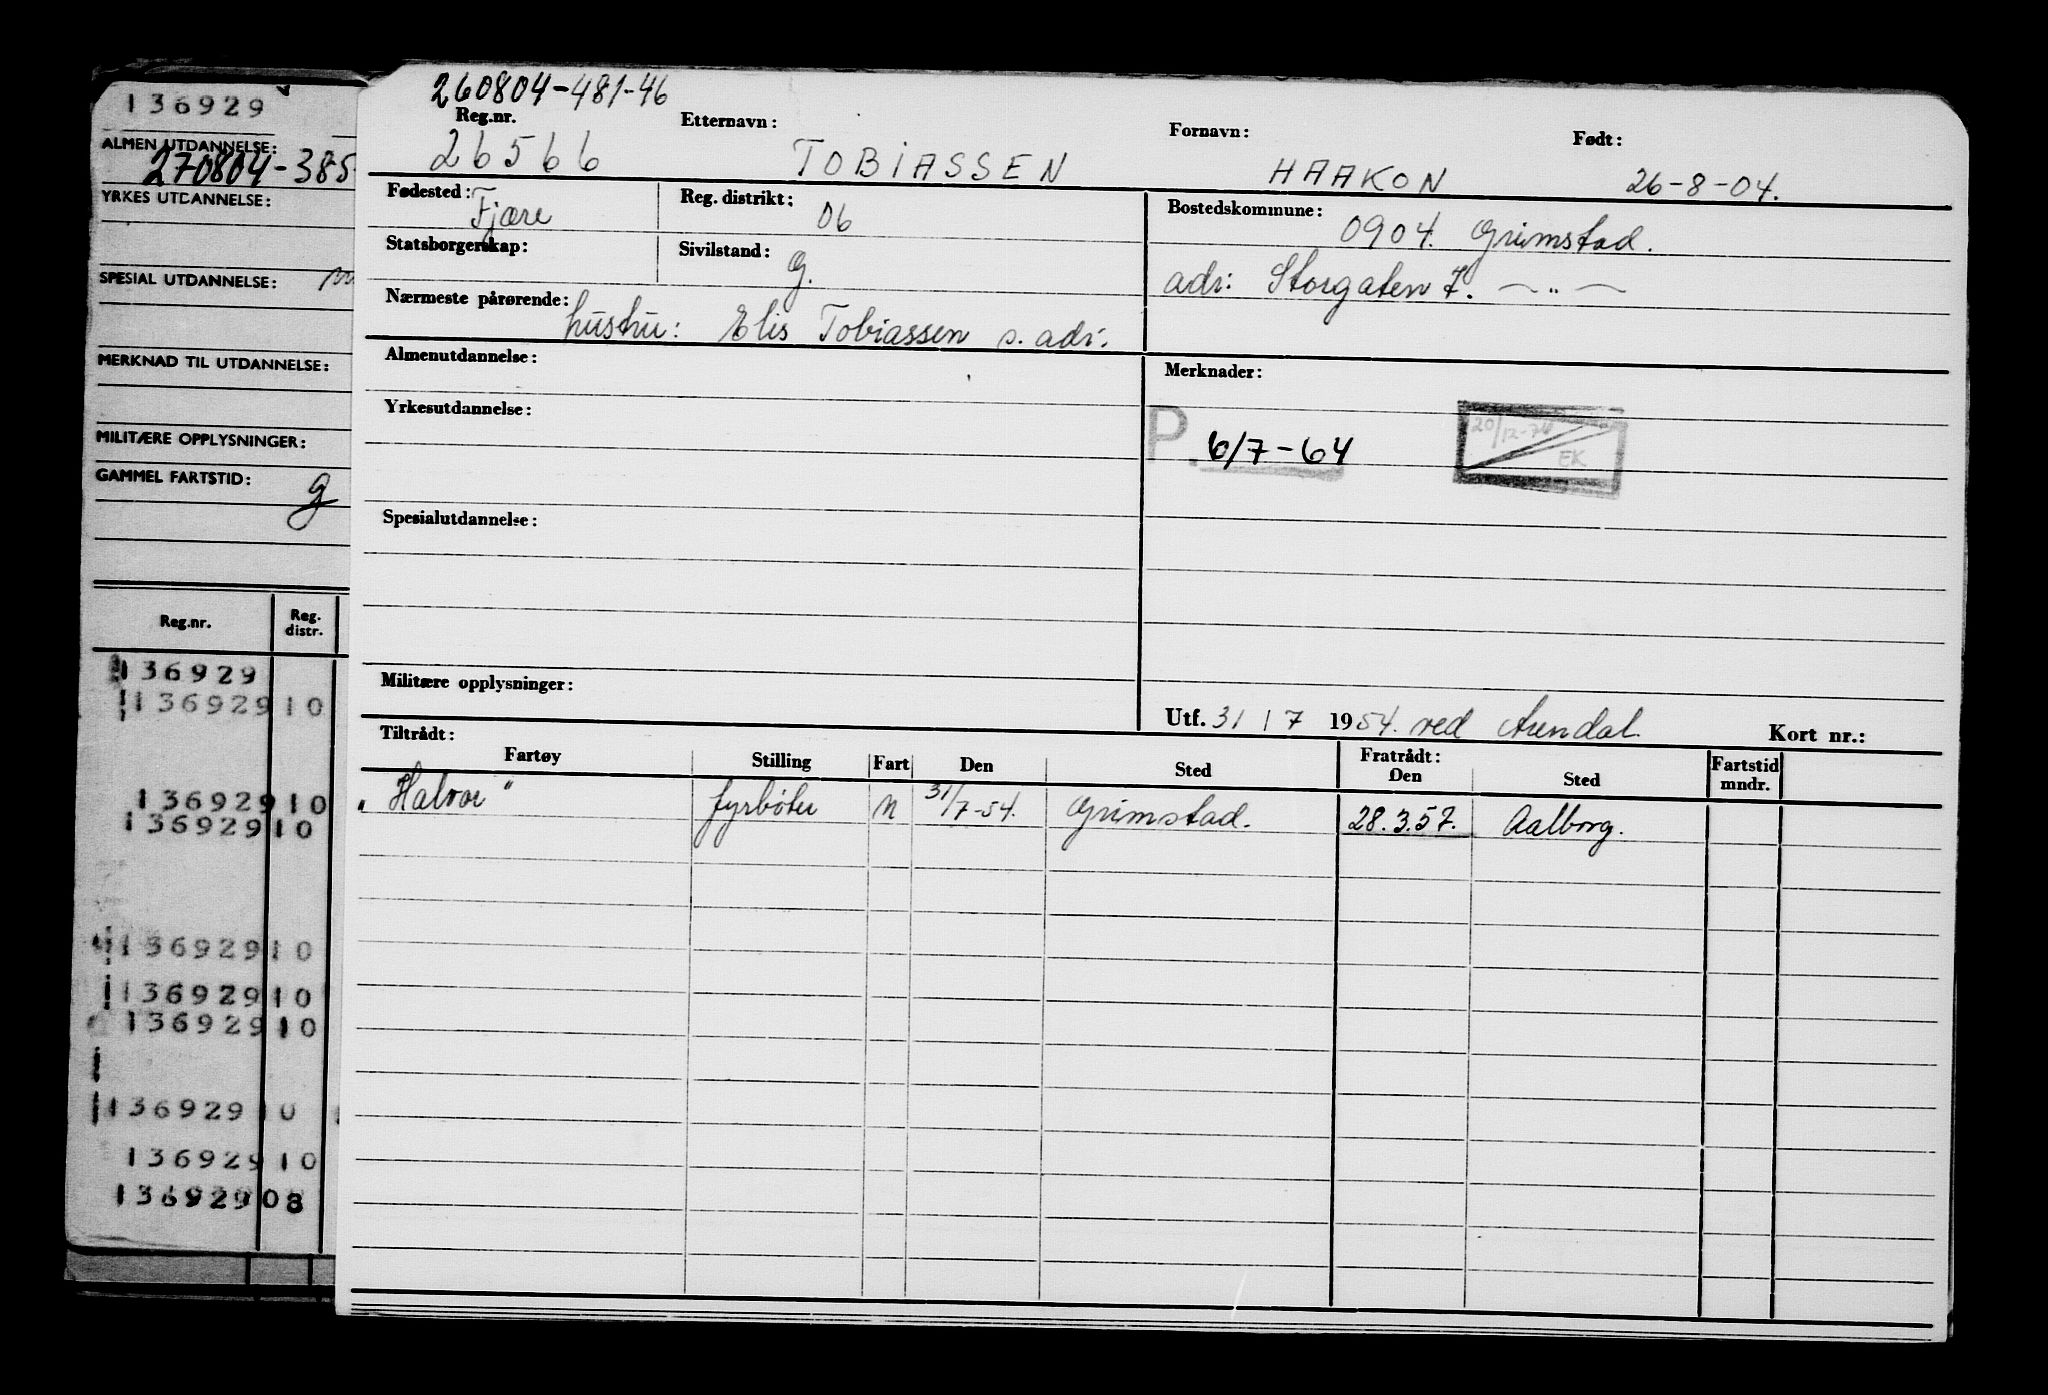 136929
ALMEN UTDANNELSE:
270804-385
YRKES UTDANNELSE:
SPESIAL UTDANNELSE:
MERKNAD TIL UTDANNELSE:
MILITÆRE OPPLYSNINGER:
GAMMEL FARTSTID: g
Reg.nr. Reg. distr.
136929
136929 10
136929 10
136929 10
136929 10
136929 10
136929 10
136929 10
136929 10
136929 08
260804-481-46
Reg.nr. Etternavn: Fornavn: Født:
26566 TOBIASSEN HAAKON 26-8-04.
Fødested: Fjære Reg. distrikt: 06 Bostedskommune: 0904. Grimstad.
Statsborgerskap: Sivilstand: g. adr: Storgaten 7. — " —
Nærmeste pårørende: hustru: Elis Tobiassen s. adr.
Almenutdannelse: Merknader:
Yrkesutdannelse:
P. 6/7-64 20/12-74 EK
Spesialutdannelse:
Militære opplysninger:
Utf. 31 / 7 1954. ved Arendal. Kort nr.:
Tiltrådt: Fratrådt:
Fartøy Stilling Fart Den Sted Den Sted Fartstid mndr.
"Halvor" fyrbøter N 31/7-54. Grimstad. 28.3.57. Aalborg.